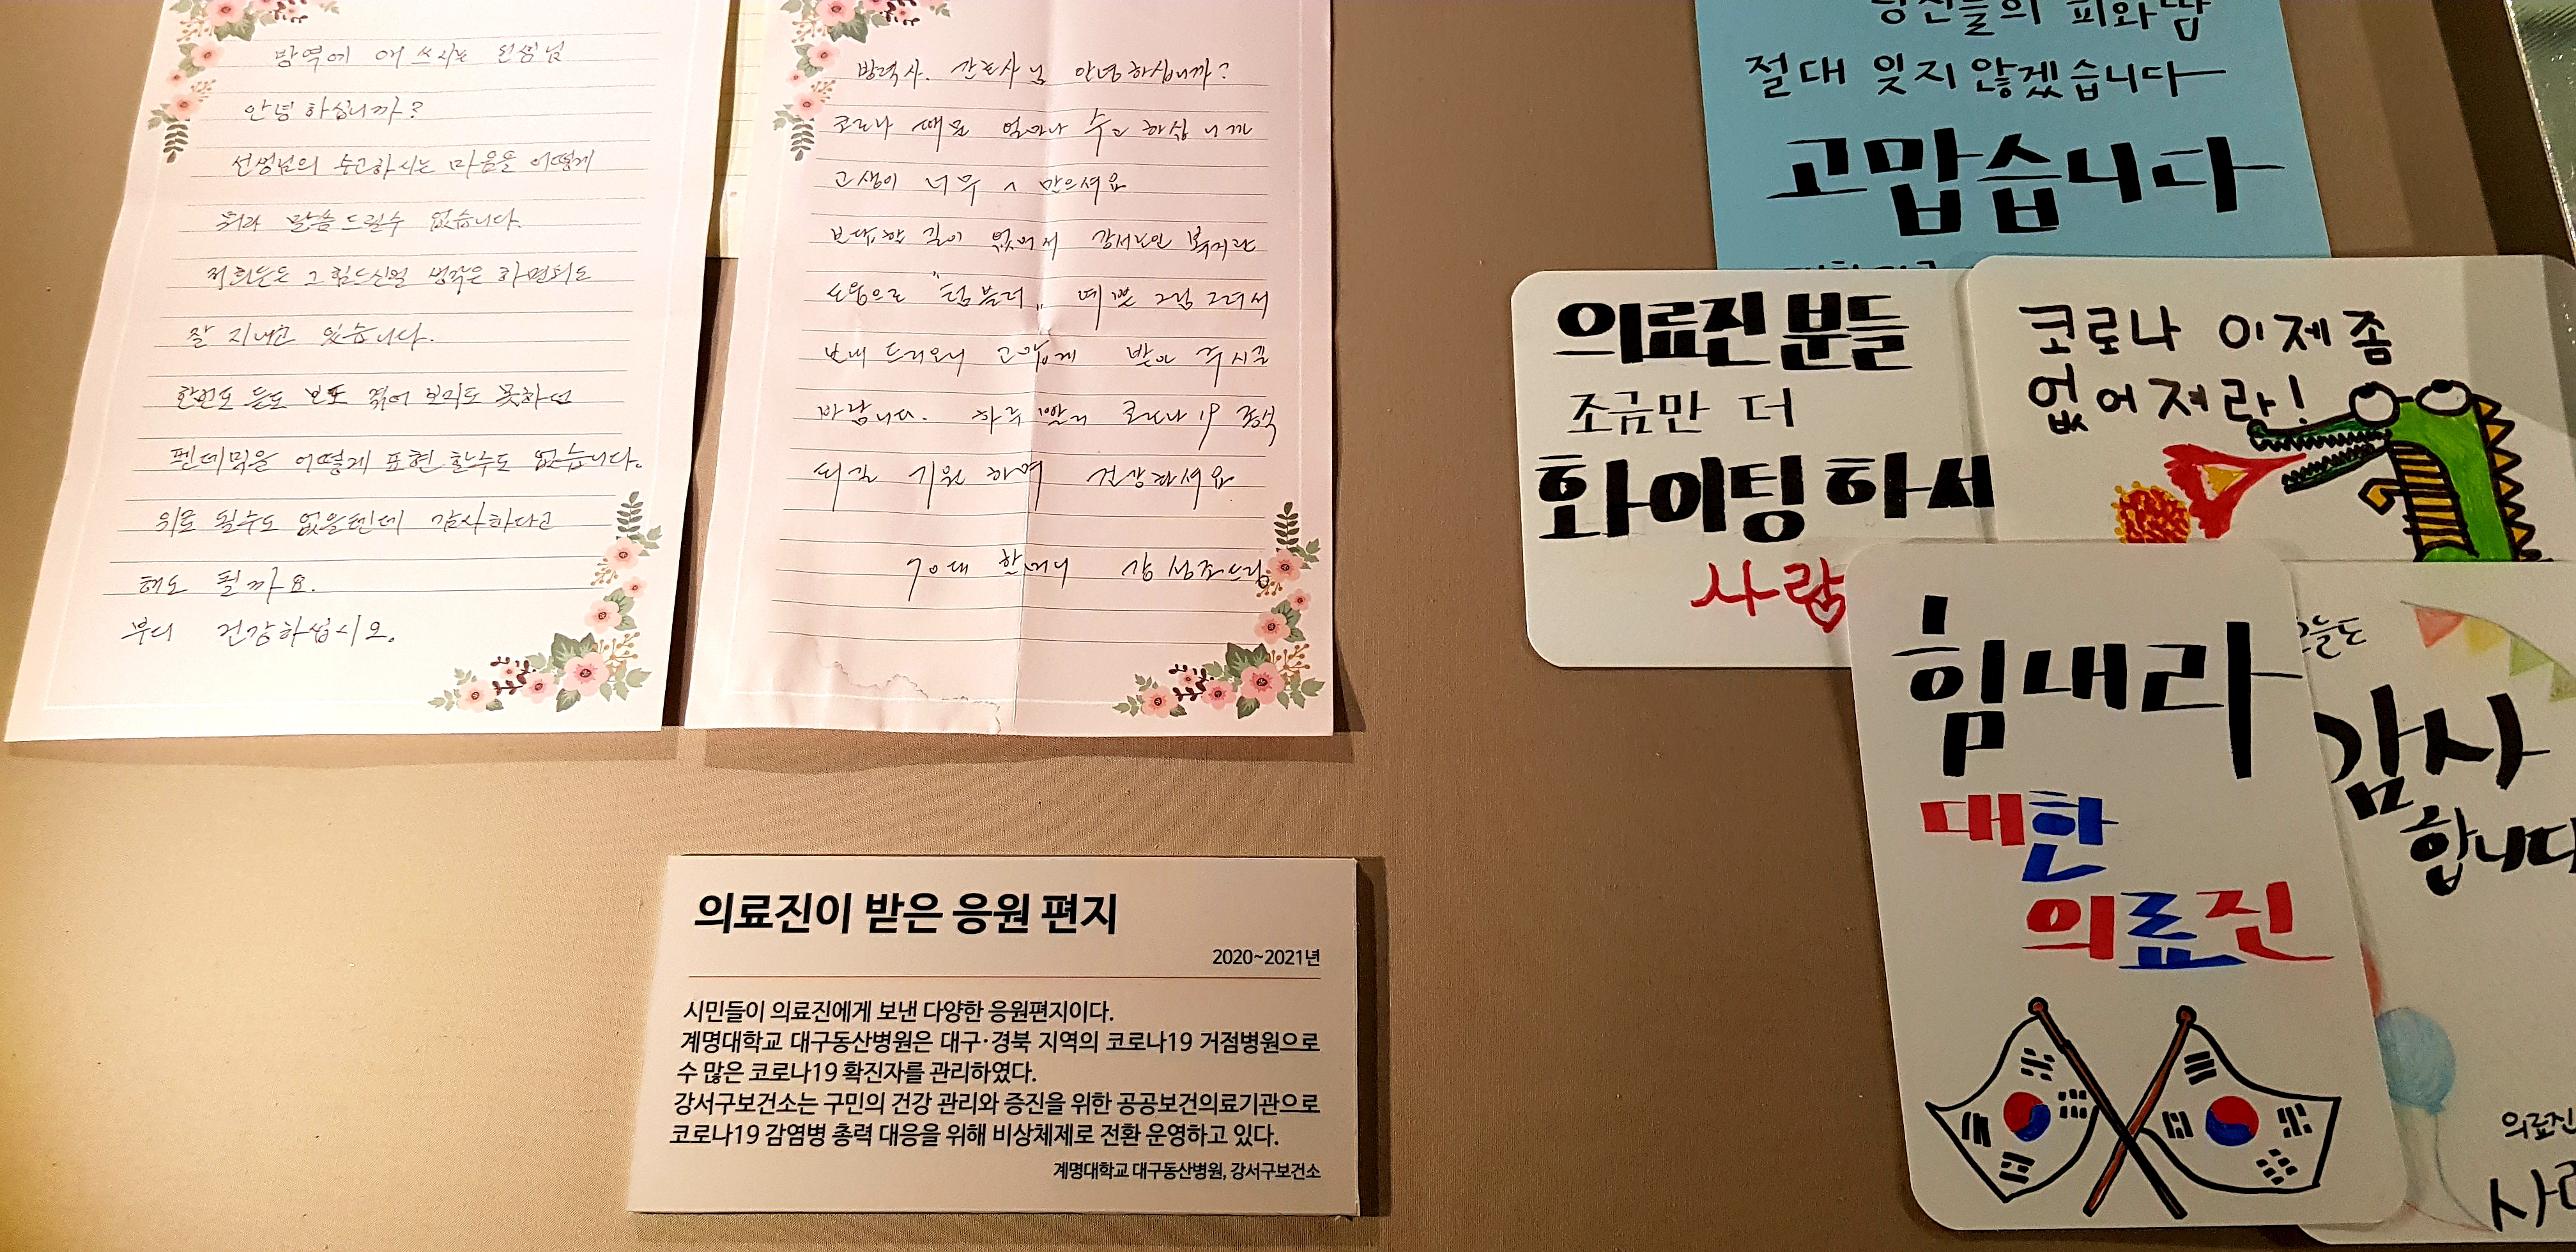 방역에 애 쓰시는 선생님
안녕 하십니까?
선생님의 수고하시는 마음을 어떻게
뭐라 말씀드릴수 없습니다.
저희들은 그 힘드신일 생각은 하면서도
잘 지내고 있습니다.
한번도 듣도 보도 겪어 보지도 못하던
펜데믹을 어떻게 표현 할수도 없습니다.
위로 될수도 없을텐데 감사하다고
해도 될까요.
부디 건강하십시오.
간호사님 안녕하십니까?
코로나 때문 얼마나 수고 하십니까
고생이 너무 많으셔요
보답할 길이 없어서 강서노인 복지관
도움으로 "텀블러" 예쁜 그림 그려서
보내 드리오니 고맙게 받아 주시길
바랍니다. 하루 빨리 코로나 19 종식
되길 기원 하며 건강하셔요
70대 할머니
의료진이 받은 응원 편지
2020~2021년
시민들이 의료진에게 보낸 다양한 응원편지이다.
계명대학교 대구동산병원은 대구·경북 지역의 코로나19 거점병원으로
수 많은 코로나19 확진자를 관리하였다.
강서구보건소는 구민의 건강 관리와 증진을 위한 공공보건의료기관으로
코로나19 감염병 총력 대응을 위해 비상체제로 전환 운영하고 있다.
계명대학교 대구동산병원, 강서구보건소
당신들의 피와 땀
절대 잊지 않겠습니다
고맙습니다
의료진분들
조금만 더
화이팅하세
사랑
코로나 이제 좀
없어져라!
힘내라
대한
의료진
오늘도
감사
합니다
의료진